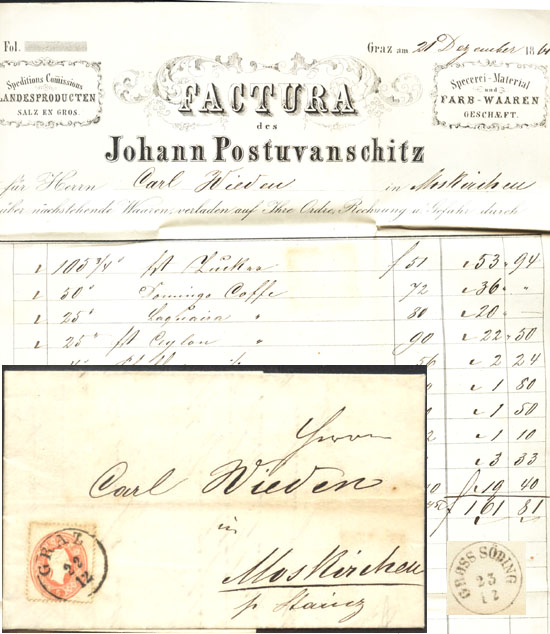 Fol.
Graz am 21 Dezember 186
Speditions Comissions
LANDESPRODUCTEN
SALZ EN GROS.
FACTURA
des
Johann Postuvanschitz
Specerei-Material
und
FARB-WAAREN
GESCHÆFT.
für Herrn Carl Wieden in Moskirchen
über nachstehende Waaren, verladen auf Ihre Ordre, Rechnung u. Gefahr durch
103 3/4 fst Zucker f 51 53 94
50 Domingo Caffe 72 36 "
25 Laguaira " 80 20 –
25 fst Ceylon " 90 22 50
56 2 24
1 80
1 50
1 10
3 33
19 40
161 81
Herrn
Carl Wieden
in
Moskirchen
p. Stainz
GRAZ
22
12
GROSS SÖDING
23
12